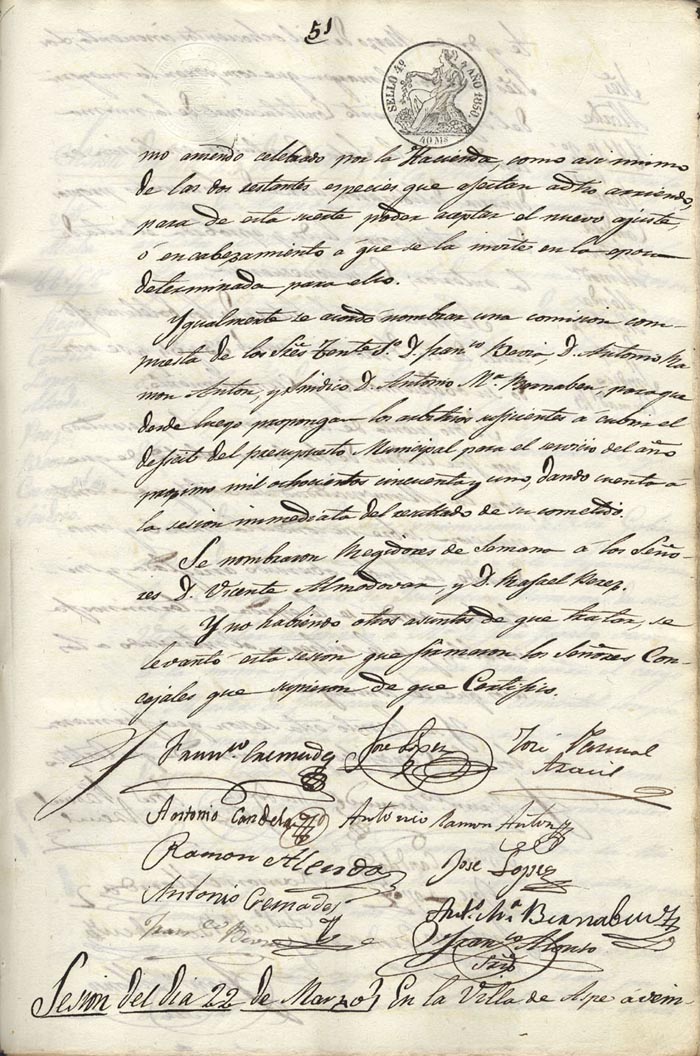 51
SELLO 4º AÑO 1850.
40 Ms
mo arriendo celebrado por la Hacienda, como asi mismo
de las dos restantes especies que afectan adho arriendo,
para de esta suerte poder aceptar el nuevo ajuste,
ó encabezamiento á que se la invite en la epoca
determinada para ello.
Ygualmente se acordó nombrar una comision com-
puesta de los Sres Tente 1º D. Franco Bevia, D. Antonio Ra-
mon Anton, y Sindico D. Antonio Mª Bernabeu, para que
desde luego propongan los arbitrios suficientes á cubrir el
deficit del presupuesto Municipal para el servicio del año
proximo mil ochocientos cincuenta y uno, dando cuenta a
la sesion inmediata del resultado de su cometido.
Se nombraron Regidores de Semana á los Seño-
res D. Vicente Almodovar, y D. Rafael Perez.
Y no habiendo otros asuntos de que tratar, se
levantó esta sesion que firmaron los Señores Con-
cejales que supieron de que Certifico.
Franco Cremades José López José Pascual
Antonio Candela Antonio Ramon Anton
Ramon Alenda Jose Lopez
Antonio Cremades Anto Mª Bernabeu
Franco Alonso
Srio
Sesion del dia 22 de Marzo En la Villa de Aspe á vein-